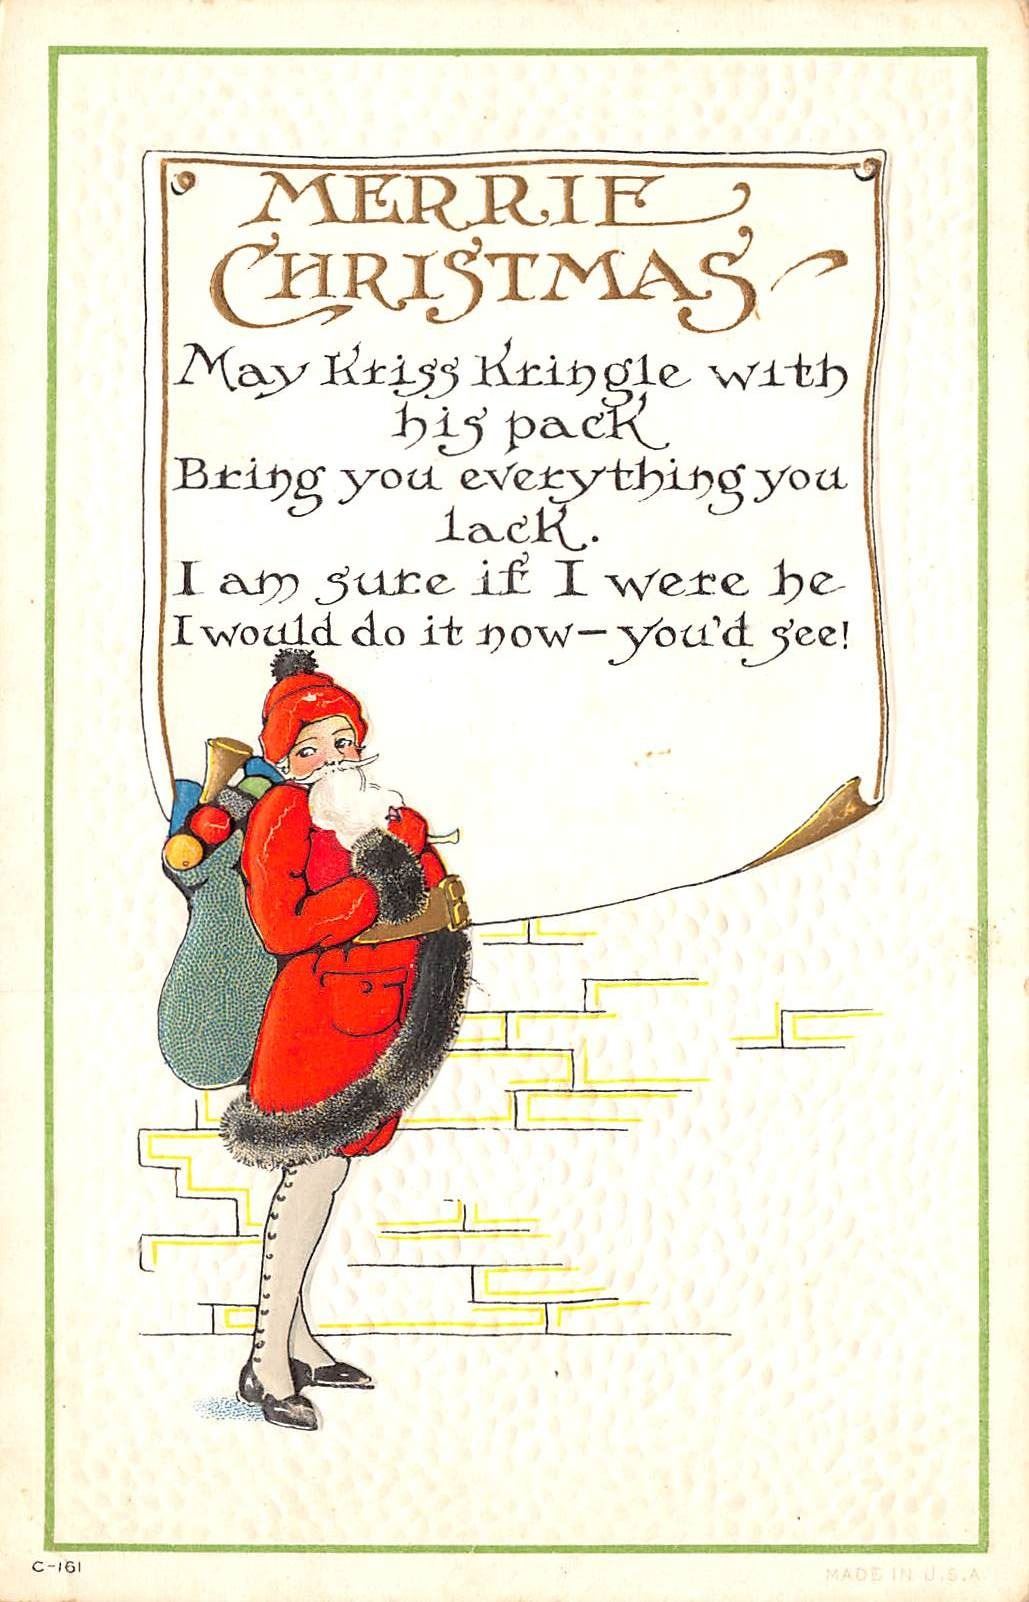 MERRIE
CHRISTMAS
May Kriss Kringle with
his pack
Bring you everything you
lack.
I am sure if I were he
I would do it now—you'd see!
C-161
MADE IN U.S.A.